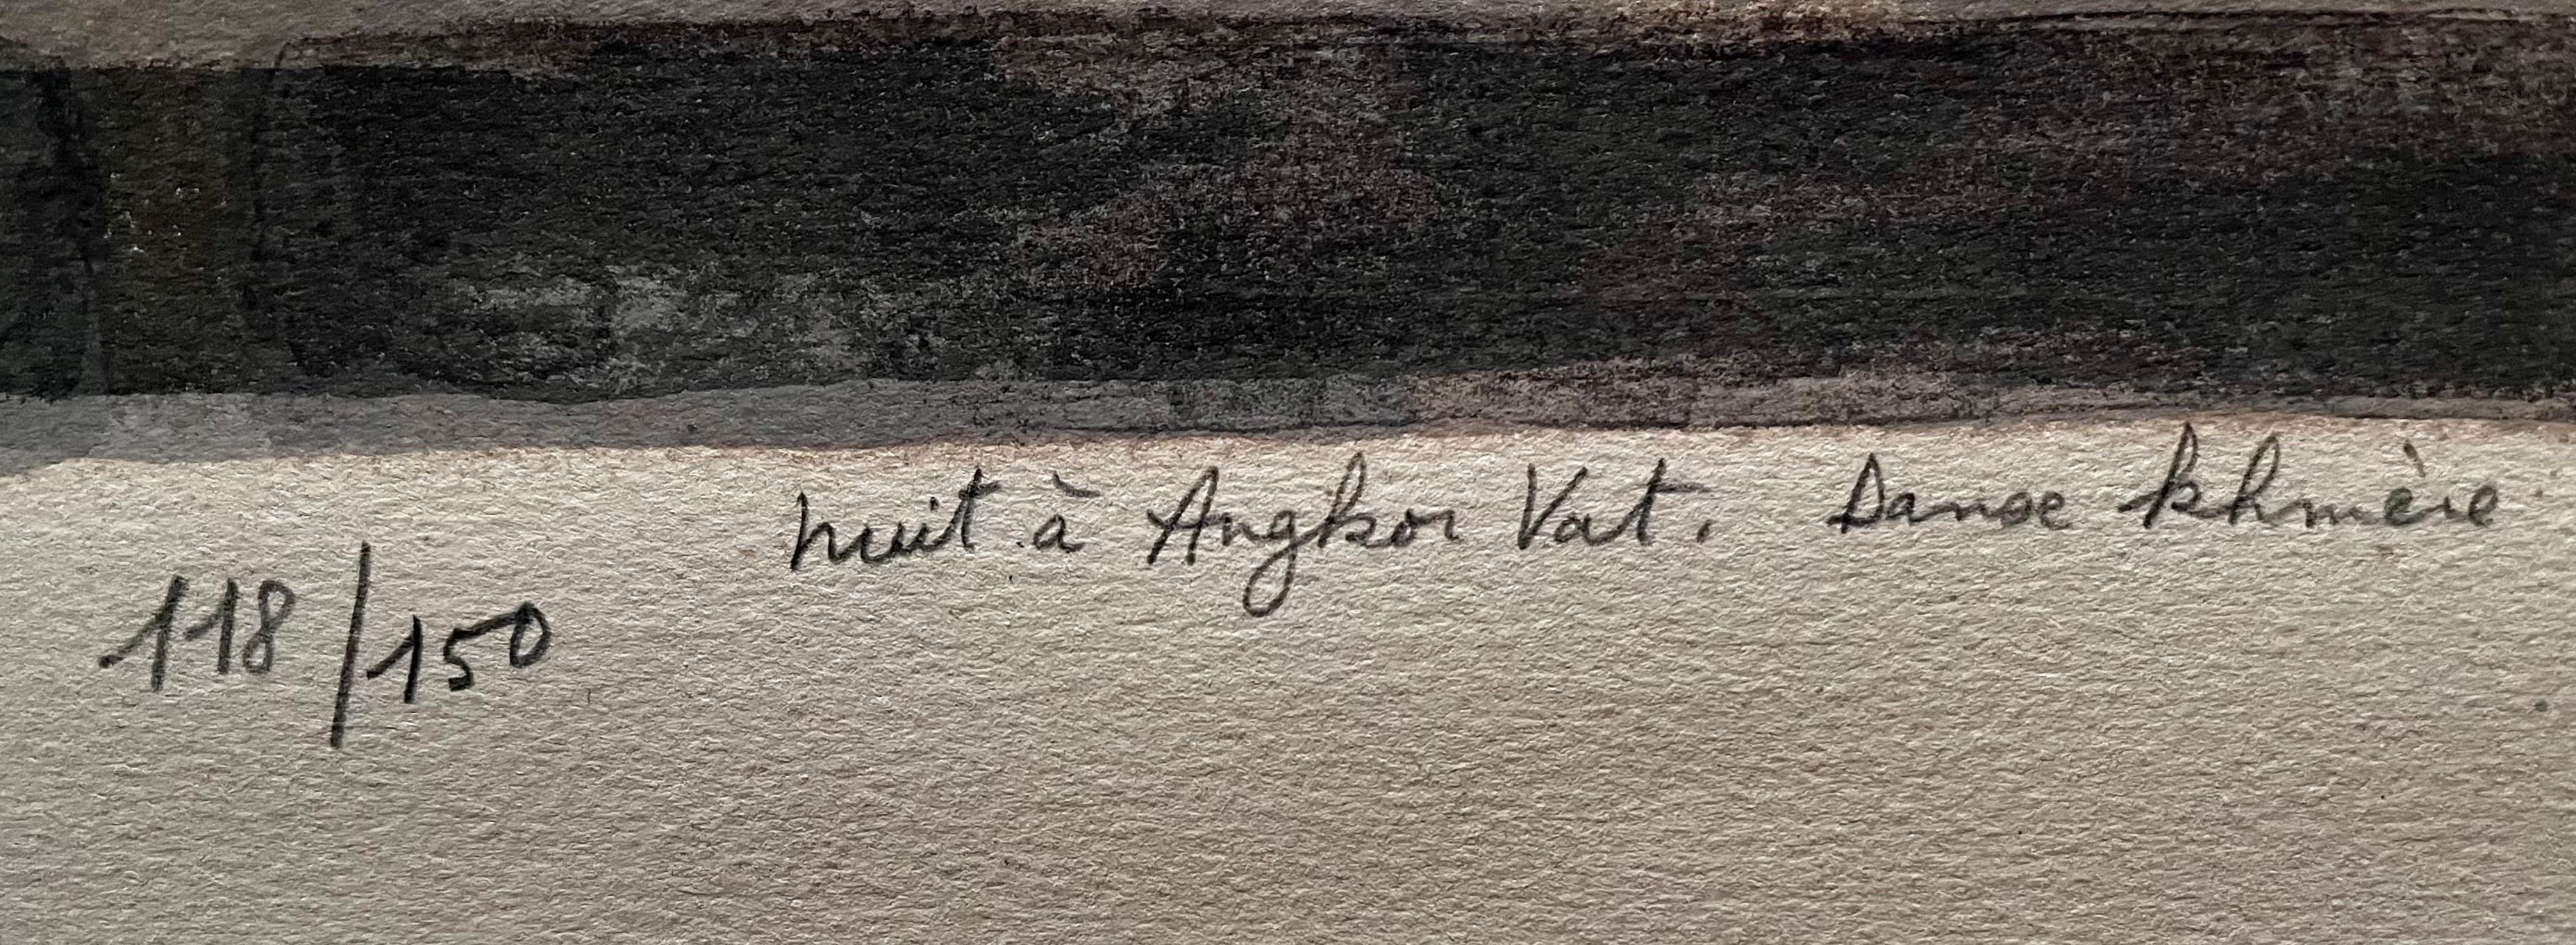 nuit à Angkor Vat. Danse khmère
118/150